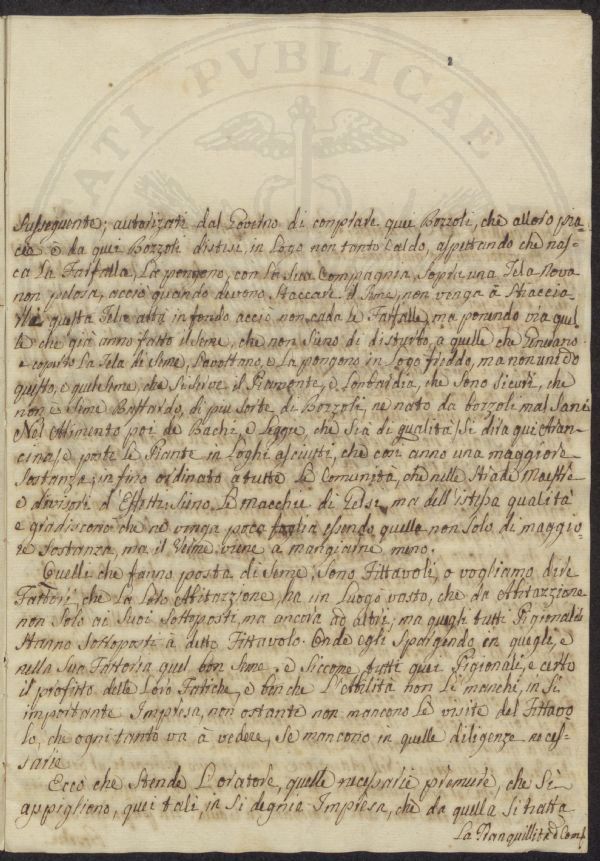 2
ATI PVBLICAE
Susseguente; autorizati dal Governo di comprare quei Bozzoli, che alloro pia=
ce e da quei Bozzoli distesi in Logo non tanto Caldo, aspettando che nas=
ca la Farfalla, La pongono, con La Sua Compagnia Sopra una Tela nova
non pelosa, acciò quando devono Staccare il Seme, non venga à Straccia
questa Tela alta in fondo acciò non cada le Farfalle, ma ponendo via quel
le che già anno fatto il Seme, che non Sieno di disturbo, à quelle che
e coperto La Tela di Seme, Levottano, e La pongono in Logo freddo, ma non umido
questo, e quel Seme, che Si Serve il Piamonte, e Lombardia, che Sono Sicuri, che
non è Seme Bastardo, di piu Sorte di Bozzoli, ne nato da bozzoli mal Sani
Nel Alimento poi de Bachi, e Legge, che Sia di qualità Si dira qui
e poste le Piante in Loghi asciutti, che così anno una maggiore
Sostanza, in fino ordinato a tutte Le Comunità, che nelle Strade Maestre
e divisori d'Effetti, Sieno Le Macchie di Gelsi, ma dell'istessa qualità
e gradiscono che ne venga poca foglia essendo quella non Solo di maggio=
re Sostanza, ma il Verme viene à mangiarne meno.
Quelli che fanno posta di Seme, Sono Fittavoli, o vogliamo dire
Fattori, che La Loro Abitazzione, ha in Luogo vasto, che da Abitazzione
non Solo ai Suoi Sottoposti, ma ancora ad altri, ma quegli tutti Pigionali
Stanno Sottoposti à detto Fittavolo. Onde egli Spargendo in quegli, e
nella Sua Fattoria quel bon Seme. e Siccome tutti quei Pigionali, è certo
il profitto delle Loro Fatiche, e ben che L'abilità non Le manchi, in Si
importante Impresa, non ostante non mancono Le visite del Fittavo
lo, che ogni tanto va à vedere, Se mancono in quelle diligenze neces=
sarie
Ecco che Stende L'oratore, quelle necessarie premure, che Si
appigliono, quei tali, in Si degnia Impresa, che da quella Si tratta
La Tranquillità d Comp